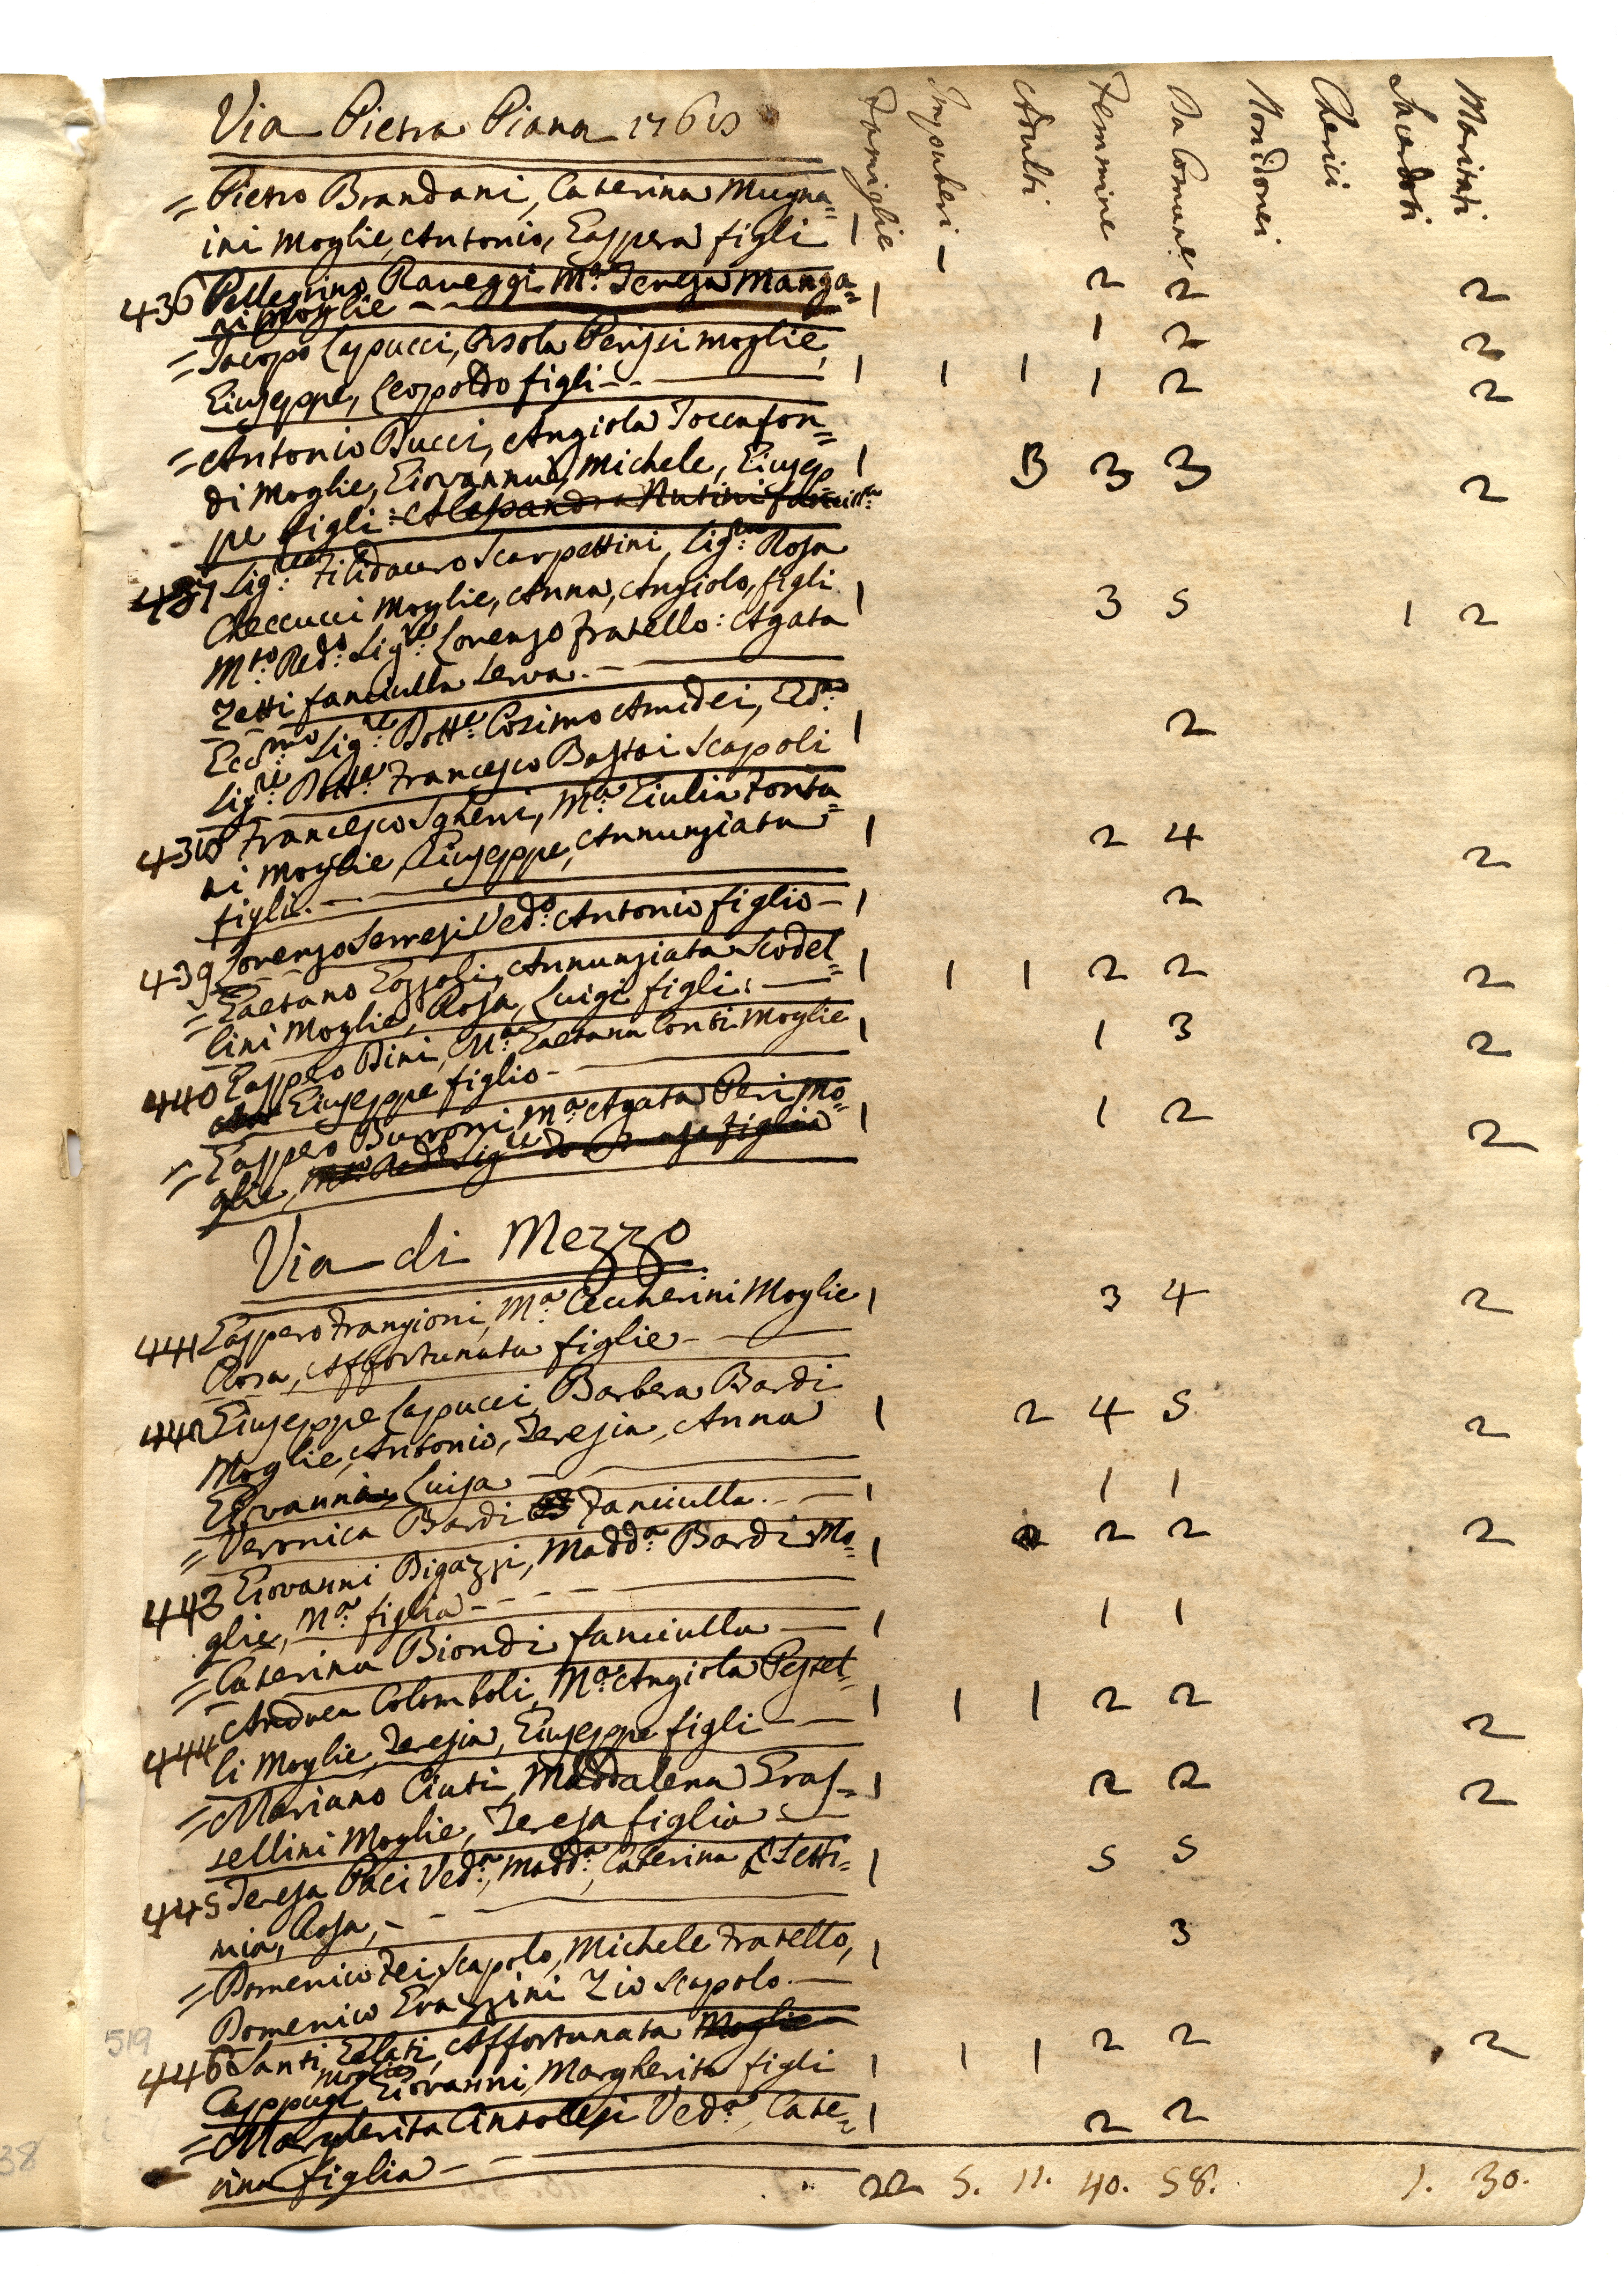 Via Pietra Piana 1768
Famiglie Impuberi Adulti Femmine Da Comune Mondonei Cherici Sacerdoti Maritati
= Pietro Brandani, Caterina Mugna=
ini Moglie, Antonio, Gaspera figli 1 1 2 2 2
436 Pellegrino Raveggi M.ª Teresa Manga= 1 1 2 2
ni Moglie
= Jacopo Capucci, Orsola Perissi moglie,
Giuseppe, Leopoldo figli 1 1 1 1 2 2
= Antonio Bucci, Angiola Toccafon=
di Moglie, Giovanna, Michele, Giusep 1 3 3 3 2
pe figli: Alessandra Nutini fanciulla
437 Sig.re Filidauro Scarpettini, Sig.ra Rosa
Checcucci Moglie, Anna, Angiolo, figli 1 3 5 1 2
M.to Red.o Sig.re Lorenzo Fratello: Agata
Zetti fanciulla Serva.
Ecc.mo Sig.re Dott.e Cosimo Amidei, Ed 1 2
Sig.re Dott.e Francesco Bastai Scapoli
438 Francesco Sgheri, M.ª Giulia Fonta= 1 2 4 2
ni Moglie, Giuseppe, Annunziata
figli.
439 Lorenzo Serresi Ved.o Antonio figlio 1 2
= Gaetano Gozzoli, Annunziata Scodel= 1 1 1 2 2 2
lini Moglie, Rosa, Luigi figli:
440 Gaspero Dini, M.ª Gaetana Conti Moglie 1 1 3 2
Giuseppe figlio
= Gaspero Burroni, M.ª Agata Peri Mo= 1 1 2 2
glie, M.to Red.o Sig.re
Via di Mezzo
441 Gaspero Frangioni, M.ª Ceccherini Moglie 1 3 4 2
Rosa, Affortunata figlie
442 Giuseppe Capucci, Barbera Bardi
Moglie, Antonio, Teresia, Anna 1 2 4 5 2
Giovanni, Luisa
= Veronica Bardi Fanciulla. 1 1 1
443 Giovanni Bigazzi, Madd.ª Bardi Mo= 1 2 2 2
glie, M.ª figlia
= Caterina Biondi fanciulla 1 1 1
444 Andrea Colomboli, M.ª Angiola Pestel= 1 1 1 2 2 2
li Moglie, Teresia, Giuseppe figli
= Mariano Ciuti, Maddalena Gras= 1 2 2 2
sellini Moglie, Teresa figlia
445 Teresa Paci Ved.ª, Madd.ª, Caterina Setti= 1 5 5
mia, Rosa,
= Domenico Fei Scapolo, Michele Fratello, 1 3
Domenico Grazzini Zio Scapolo.
446 Santi Gelati, Affortunata Moglie
Cappugi Moglie, Giovanni, Margherita figli 1 1 1 2 2 2
= Margherita Antolesi Ved.ª, Cate= 1 2 2
rina figlia
22 5. 11. 40. 58. 1. 30.
519
38